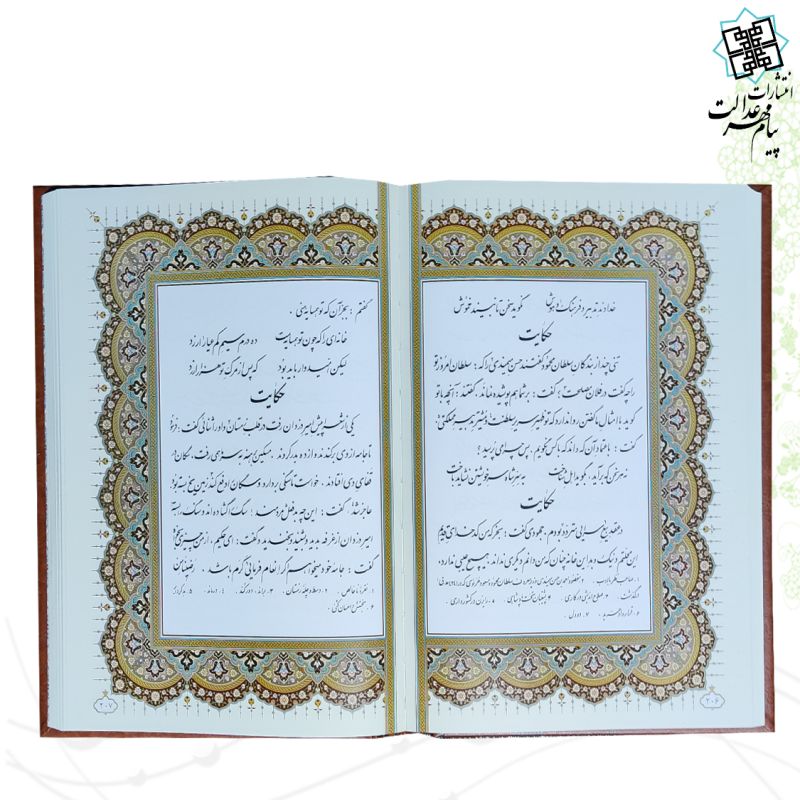 انتشارات
پیام مهر عدالت
خداوند تدبیر و فرهنگ و هوش نگوید سخن تا نبیند خموش
حکایت
تنی چند از بندگان سلطان محمود گفتند حسن میمندی را که: سلطان امروز تو
را چه گفت در فلان مصلحت؟ گفت: بر شما هم پوشیده نماند. گفتند: آنچه با تو
گوید با امثال ما گفتن روا ندارد
گفت: باعتماد آن که داند که با کس نگویم، پس چرا همی پرسید؟
نه هر سخن که برآید، بگوید اهل شناخت به سر شاه سر خویشتن نشاید باخت
حکایت
در عقد بیع سرایی متردد بودم، جهودی گفت: بخر که من کدخدای قدیم
این محلتم و نیک و بد این خانه چنان که من دانم دیگری نداند، هیچ عیبی ندارد.
۲۰۶
گفتم: بجز آن که تو همسایه منی.
خانه‌ای را که چون تو همسایه است ده درم سیم کم عیار ارزد
لیکن امیدوار باید بود که پس از مرگ تو هزار ارزد
حکایت
یکی از شعرا پیش امیر دزدان رفت در طلب زمستان و او را ثنایی گفت: فرمود
تا جامه از وی برکندند و از ده بدر کردند. مسکین برهنه به سرما همی رفت. سگان از
قفای وی افتادند. خواست تا سنگی بردارد و سگان را دفع کند، زمین یخ بسته بود
عاجز شد، گفت: این چه بدفعل مردمند! سگ را گشاده‌اند و سنگ را بسته
امیر دزدان از غرفه بدید و بشنید و بخندید و گفت: ای حکیم، از من چیزی بخواه
گفت: جامه خود میخواهم اگر انعام فرمایی کرم باشد. رضینا من
۲۰۷